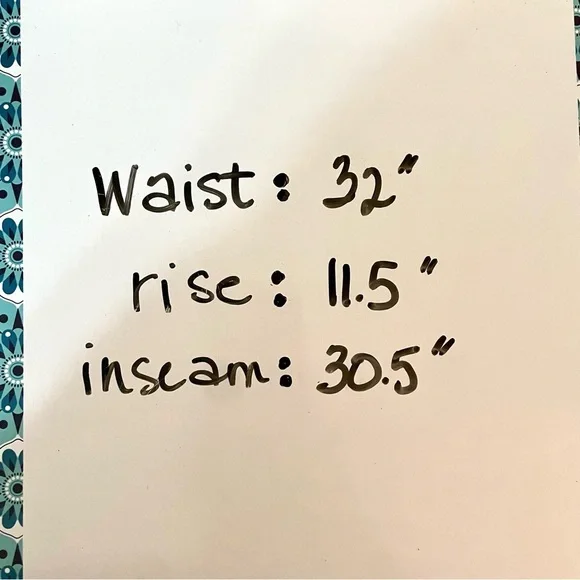 Waist: 32"
rise: 11.5"
inseam: 30.5"